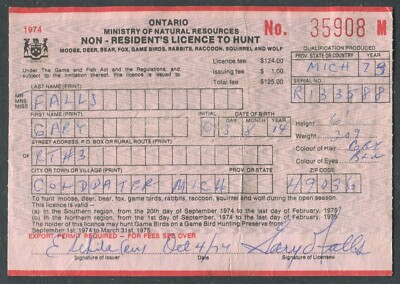 ONTARIO
1974
MINISTRY OF NATURAL RESOURCES
No. 35908 M
NON - RESIDENT'S LICENCE TO HUNT
MOOSE, DEER, BEAR, FOX, GAME BIRDS, RABBITS, RACCOON, SQUIRREL AND WOLF
QUALIFICATION PRODUCED
PROV. STATE OR COUNTRY YEAR
MICH 73
Licence fee $124.00
Issuing fee $ 1.00
Total fee $125.00
Under The Game and Fish Act and the Regulations, and
subject to the limitations thereof, this licence is issued to
SERIAL NUMBER
R133588
LAST NAME (PRINT)
MR
MRS
MISS
FALLS
FIRST NAME (PRINT) INITIAL DATE OF BIRTH
GARY
Height 6'
STREET ADDRESS, P.O. BOX OR RURAL ROUTE (PRINT)
Weight 209
RT#3
Colour of Hair
Colour of Eyes BLU
CITY OR TOWN OR VILLAGE (PRINT) PROVINCE OR STATE ZIP CODE
COLDWATER MICH 49036
to hunt moose, deer, bear, fox, game birds, rabbits, raccoon, squirrel and wolf during the open season.
This licence is valid -
(a) in the Southern region, from the 20th day of September, 1974 to the last day of February, 1975.
(b) in the Northern region, from the 1st day of September, 1974 to the last day of February, 1975.
The holder of this licence may hunt Game Birds on a Game Bird Hunting Preserve from
September 1st, 1974 to March 31st, 1975.
EXPORT PERMIT REQUIRED - FOR FEES SEE OVER
Oct 4/74 Gary Falls
Signature of Issuer Date Signature of Licensee